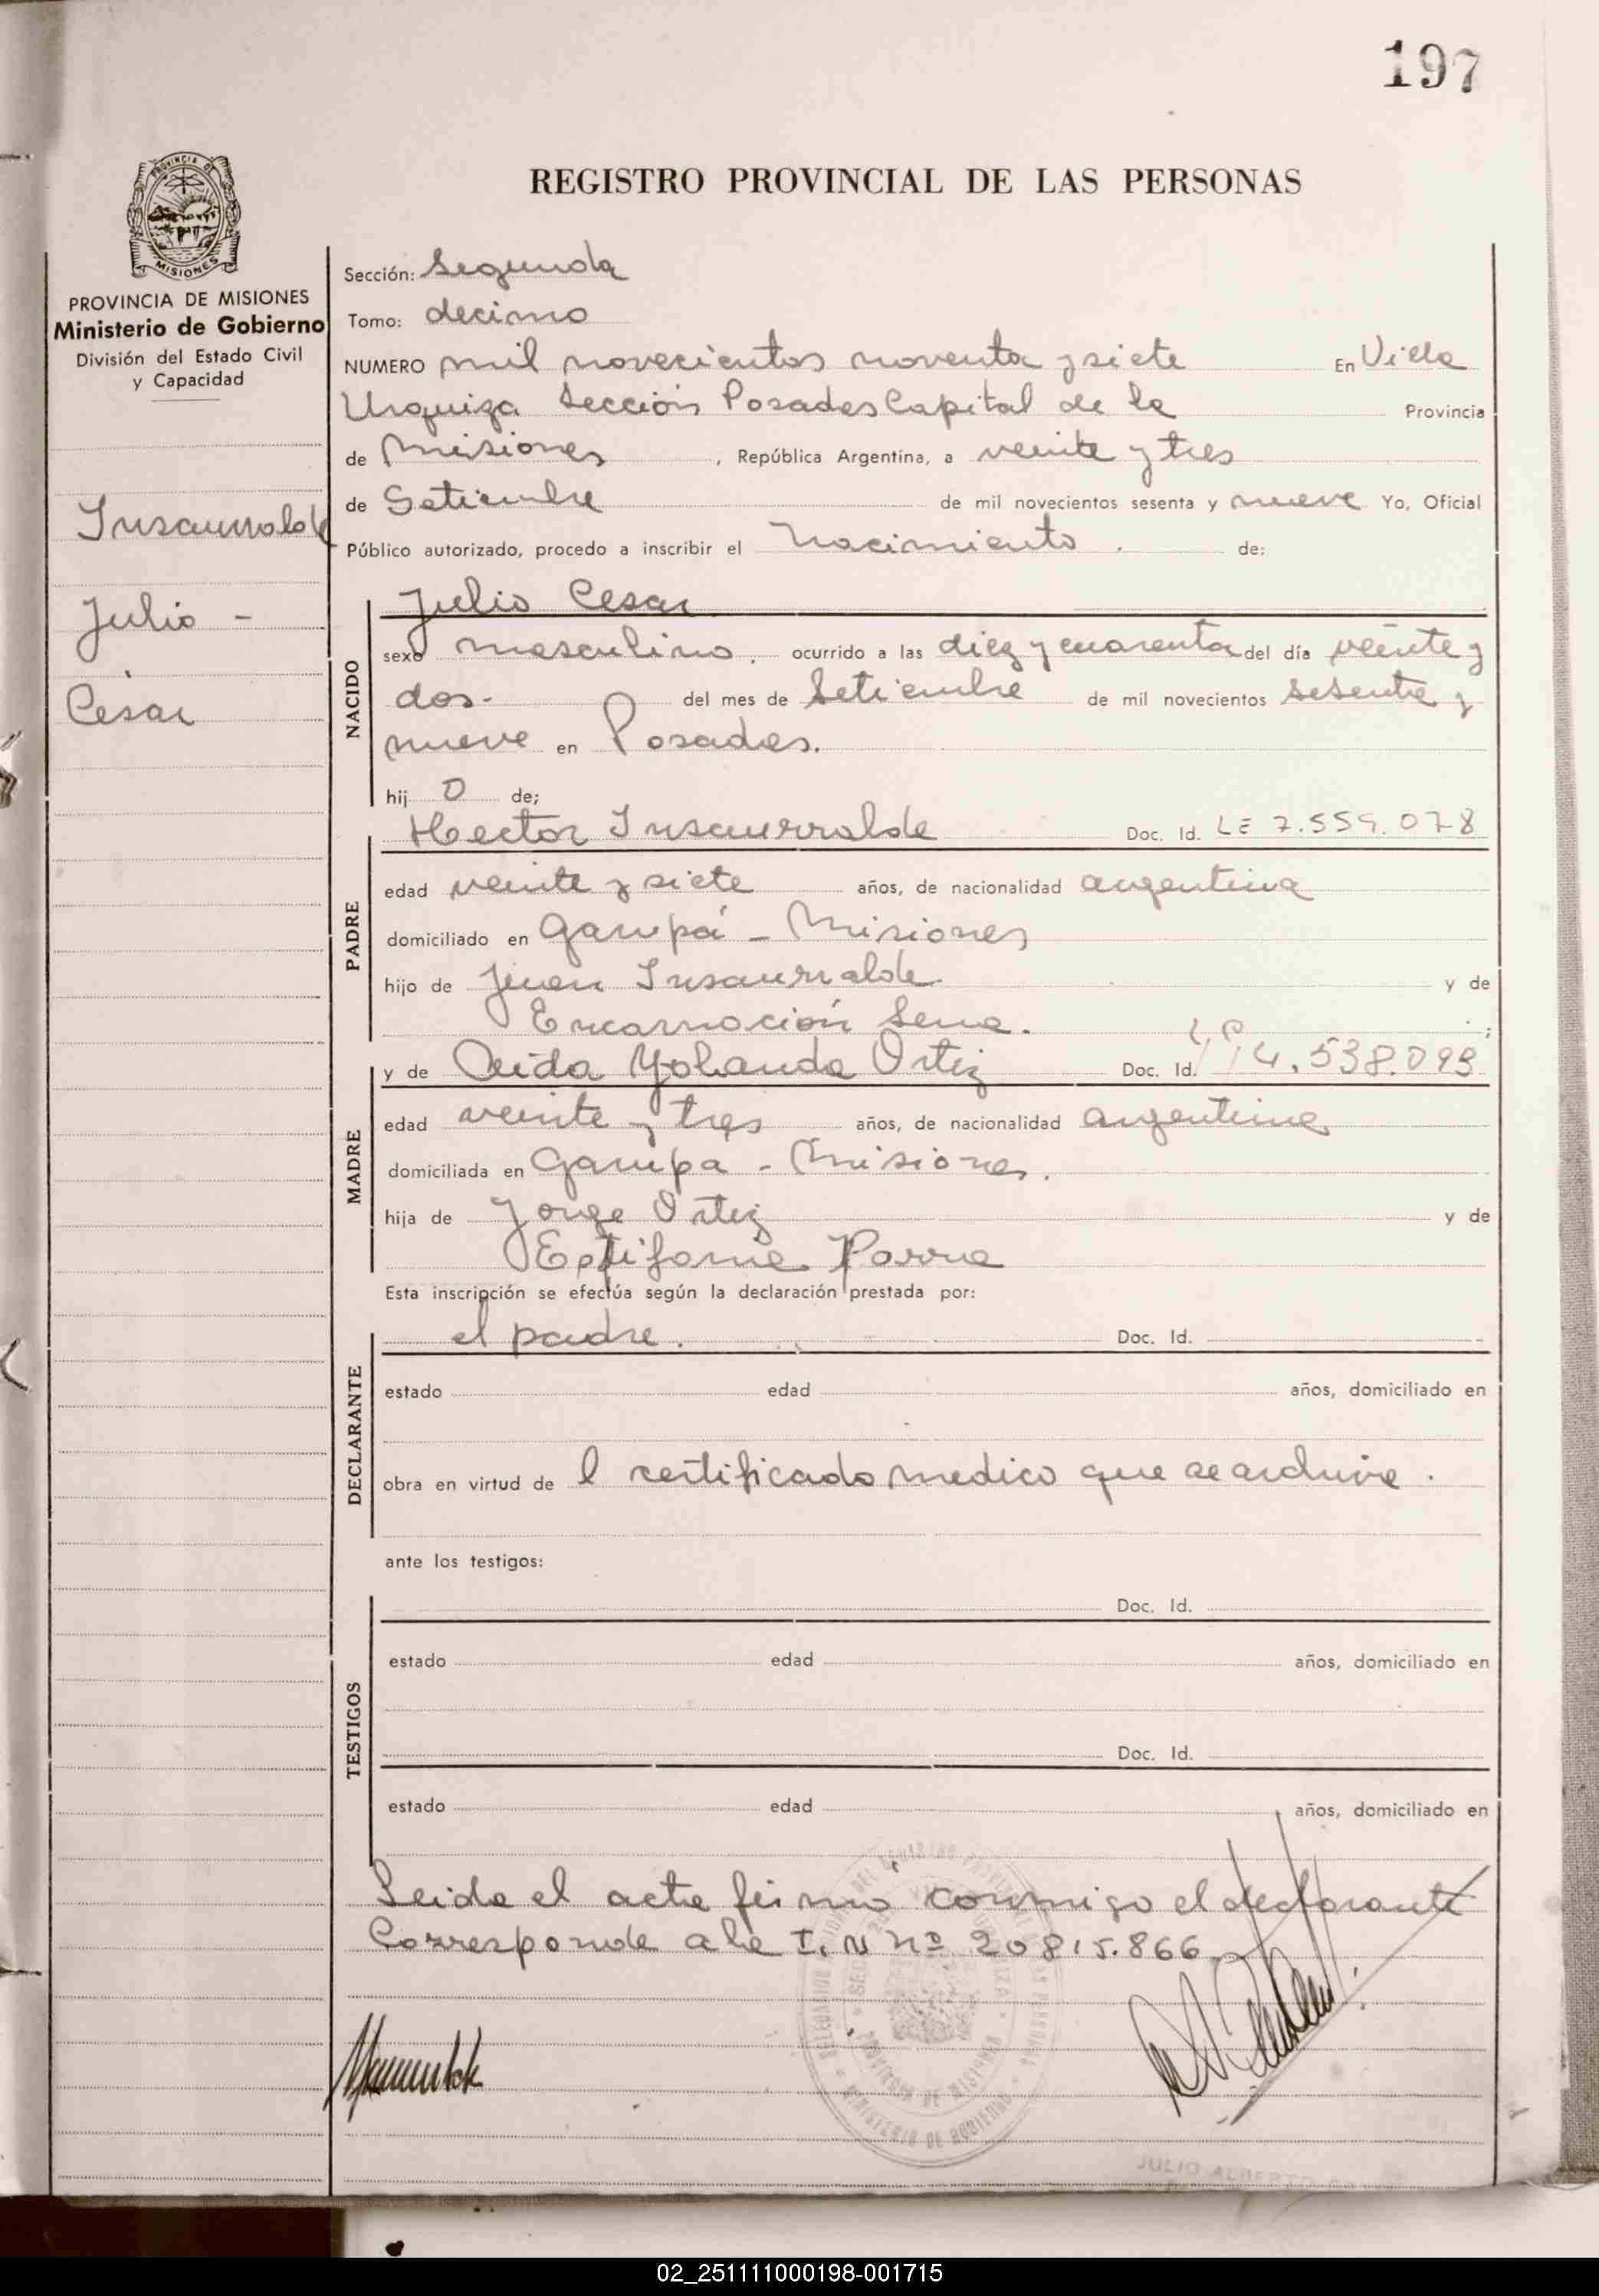 197
PROVINCIA DE
MISIONES
PROVINCIA DE MISIONES
Ministerio de Gobierno
División del Estado Civil
y Capacidad
Insaurralde
Julio -
Cesar
REGISTRO PROVINCIAL DE LAS PERSONAS
Sección: Segunda
Tomo: decimo
NUMERO mil novecientos noventa y siete En Villa
Urquiza Sección Posadas Capital de la Provincia
de Misiones, República Argentina, a veinte y tres
de Setiembre de mil novecientos sesenta y nueve Yo, Oficial
Público autorizado, procedo a inscribir el Nacimiento. de:
NACIDO
Julio Cesar
sexo masculino. ocurrido a las diez y cuarenta del día veinte y
dos- del mes de Setiembre de mil novecientos sesenta y
nueve en Posadas.
hij o de;
PADRE
Hector Insaurralde Doc. Id. LE 7.559.078
edad veinte y siete años, de nacionalidad argentina
domiciliado en Garupá - Misiones
hijo de Juan Insaurralde y de
Encarnación Sena.
MADRE
y de Aida Yolanda Ortiz Doc. Id. 4.538.093
edad veinte y tres años, de nacionalidad argentina
domiciliada en Garupa - Misiones.
hija de Jorge Ortiz y de
Estifania Parra
Esta inscripción se efectúa según la declaración prestada por:
DECLARANTE
el padre. Doc. Id.
estado edad años, domiciliado en
obra en virtud de l certificado medico que se archiva.
ante los testigos:
TESTIGOS
Doc. Id.
estado edad años, domiciliado en
Doc. Id.
estado edad años, domiciliado en
Leida el acta firmó conmigo el declarante
Corresponde a la I. N nº 20815.866
MINISTERIO DE GOBIERNO
PROVINCIA DE MISIONES
JULIO ALBERTO
02_251111000198-001715